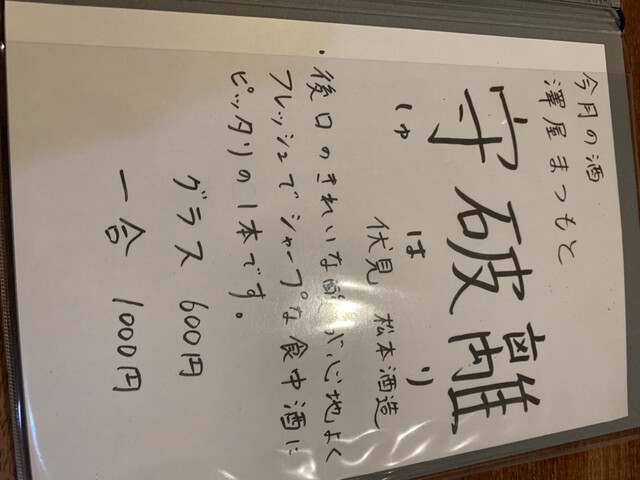 今月の酒
澤屋まつもと
守破離
しゅ は り
伏見 松本酒造
・後口のきれいな酸が心地よく
フレッシュでシャープな食中酒に
ピッタリの1本です。
グラス 600円
一合 1000円